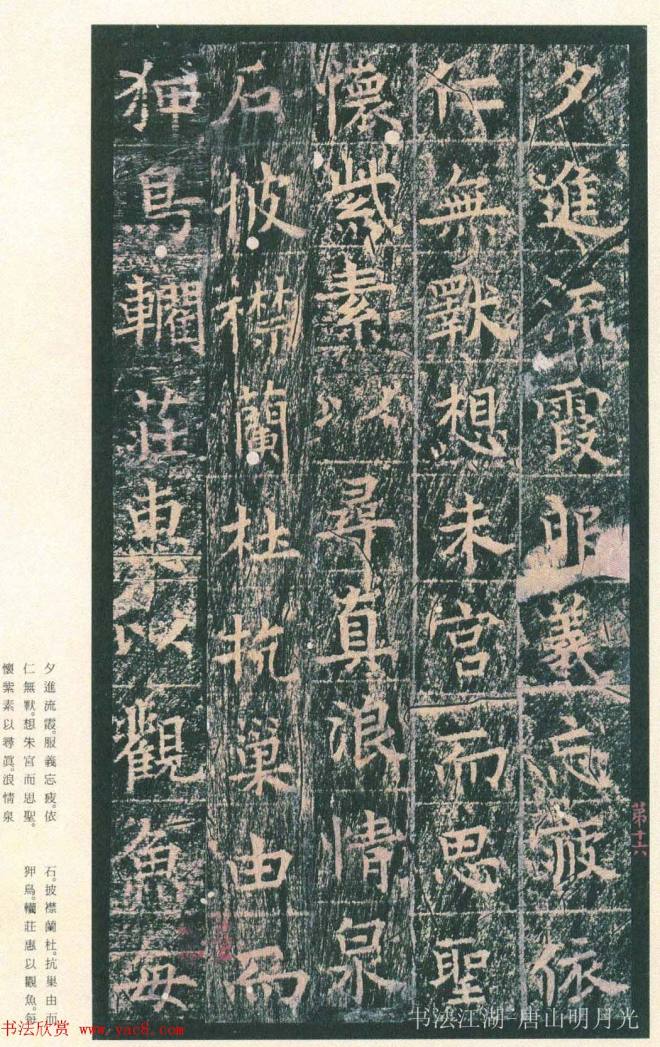 夕進流霞服義忘疲依
仁無歝想朱宮而思聖
懷紫素以尋真浪情泉
石披襟蘭杜抗巢由而
狎鳥轥莊惠以觀魚每
第十六
夕進流霞。服義忘疲。依
仁無歝。想朱宮而思聖。
懷紫素以尋眞。浪情泉
石。披襟蘭杜。抗巢由而
狎鳥。轥莊惠以觀魚。每
书法江湖-唐山明月光
书法欣赏 www.yac8.com